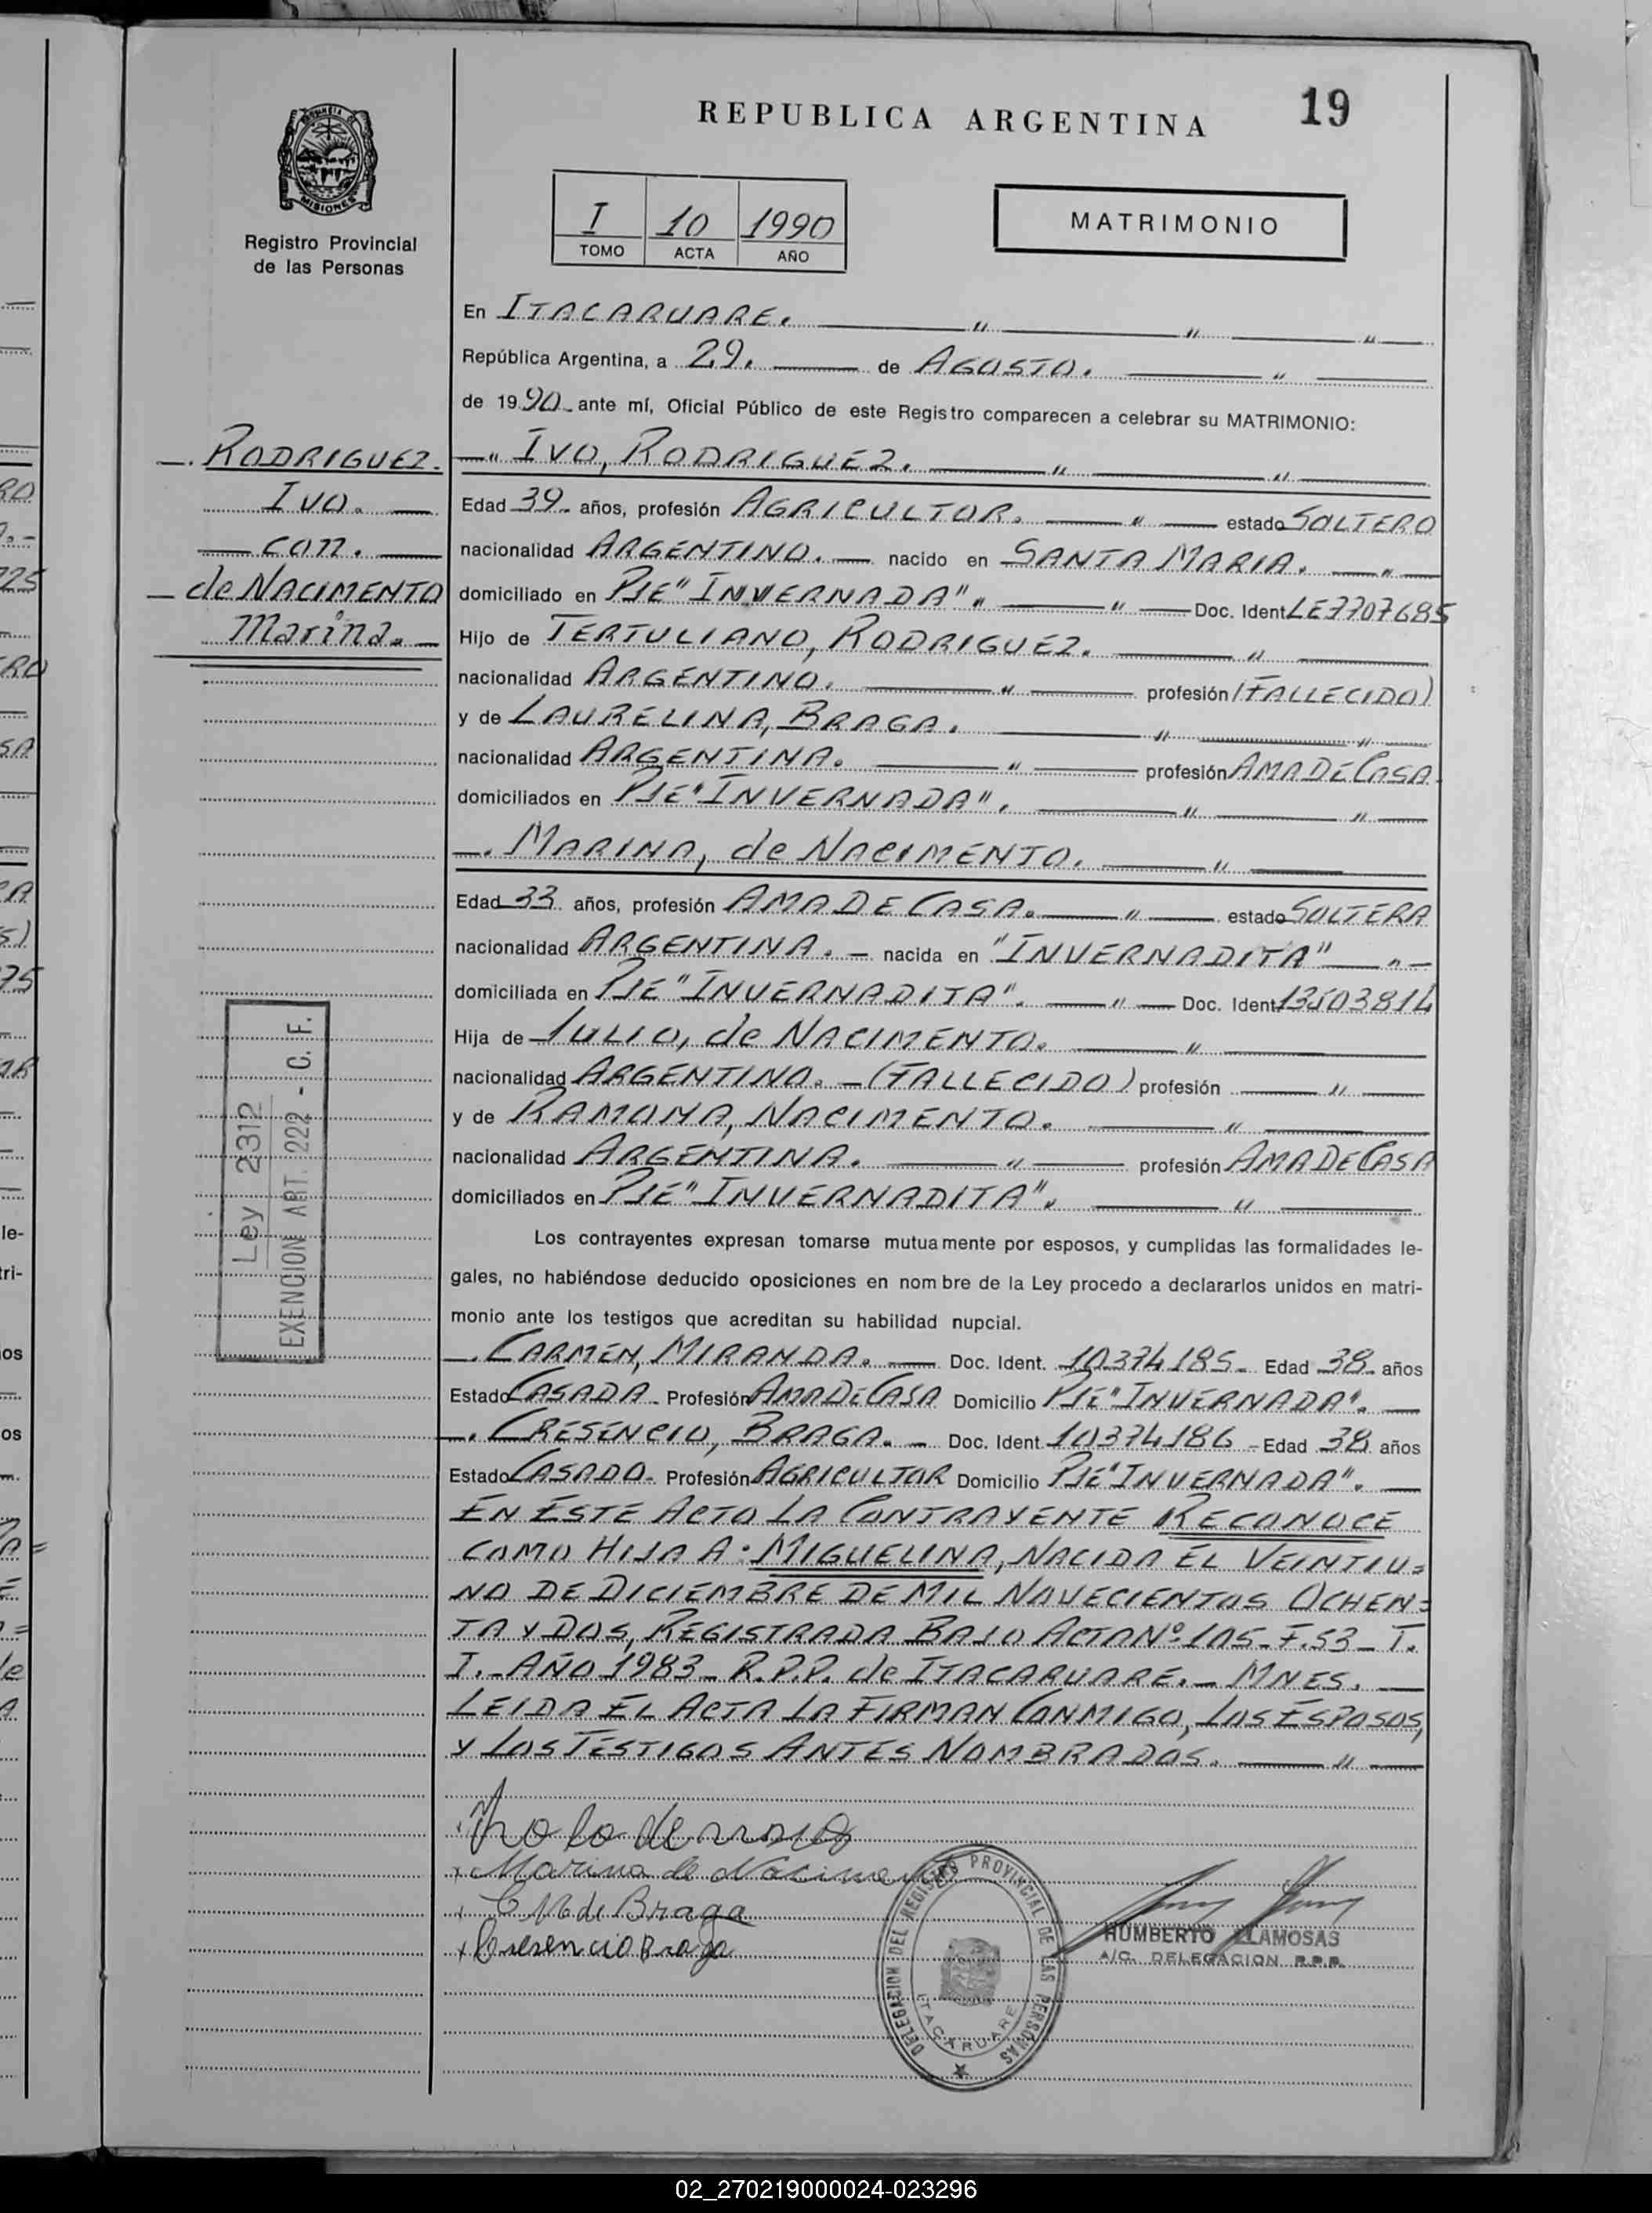 REPUBLICA ARGENTINA
19
PROVINCIA D MISIONES
Registro Provincial
de las Personas
I 10 1990
TOMO ACTA AÑO
MATRIMONIO
En ITACARUARE.
República Argentina, a 29. de AGOSTO.
de 1990 ante mí, Oficial Público de este Registro comparecen a celebrar su MATRIMONIO:
RODRIGUEZ.
IVO.
con.
de NACIMENTO
Marina.
IVO, RODRIGUEZ.
Edad 39. años, profesión AGRICULTOR. estado SOLTERO
nacionalidad ARGENTINO. nacido en SANTA MARIA.
domiciliado en PJE "INVERNADA". Doc. Ident LE7707685
Hijo de TERTULIANO, RODRIGUEZ.
nacionalidad ARGENTINO. profesión (FALLECIDO)
y de LAURELINA, BRAGA.
nacionalidad ARGENTINA. profesión AMA DE CASA.
domiciliados en PJE "INVERNADA".
MARINA, de NACIMENTO.
Edad 33. años, profesión AMA DE CASA. estado SOLTERA
nacionalidad ARGENTINA. nacida en "INVERNADITA"
domiciliada en PJE "INVERNADITA". Doc. Ident 13503814
Hija de JULIO, de NACIMENTO.
nacionalidad ARGENTINO. (FALLECIDO) profesión
y de RAMONA, NACIMENTO.
nacionalidad ARGENTINA. profesión AMA DE CASA
domiciliados en PJE "INVERNADITA".
Los contrayentes expresan tomarse mutuamente por esposos, y cumplidas las formalidades le-
gales, no habiéndose deducido oposiciones en nombre de la Ley procedo a declararlos unidos en matri-
monio ante los testigos que acreditan su habilidad nupcial.
CARMEN, MIRANDA. Doc. Ident. 10374185. Edad 38. años
Estado CASADA. Profesión AMA DE CASA Domicilio PJE "INVERNADA".
CRESENCIO, BRAGA. Doc. Ident. 10374186 Edad 38 años
Estado CASADO. Profesión AGRICULTOR Domicilio PJE "INVERNADA".
EN ESTE ACTO LA CONTRAYENTE RECONOCE
COMO HIJA A: MIGUELINA, NACIDA EL VEINTIU=
NO DE DICIEMBRE DE MIL NOVECIENTOS OCHEN=
TA Y DOS, REGISTRADA BAJO ACTA Nº 105-F.53-T.
I.-AÑO 1983-R.P.P. de ITACARUARE.-MNES.
LEIDA EL ACTA LA FIRMAN CONMIGO, LOS ESPOSOS,
Y LOS TESTIGOS ANTES NOMBRADOS.
Ley 2312
EXENCION ART. 222 - C. F.
Marina de Nacimento
C M de Braga
Cresencio Braga
DELEGACION DEL REGISTRO PROVINCIAL DE LAS PERSONAS
ITACARUARE
HUMBERTO LLAMOSAS
A/C. DELEGACION R.P.P.
02_270219000024-023296